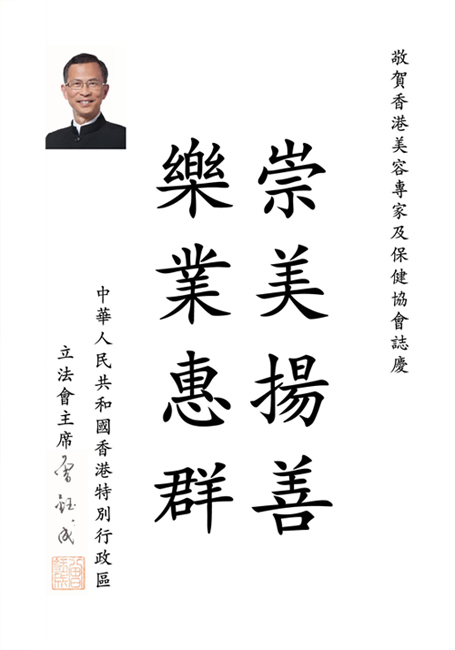 敬賀香港美容專家及保健協會誌慶
崇美揚善
樂業惠群
中華人民共和國香港特別行政區
立法會主席
曾鈺成